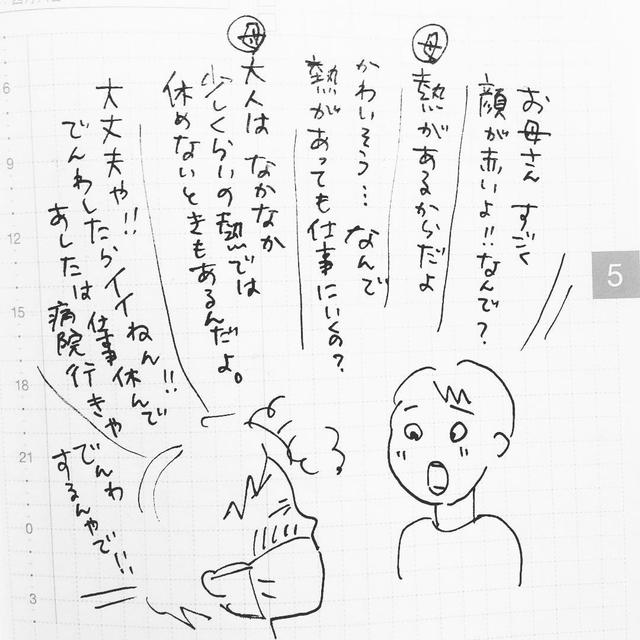 お母さん すごく
顔が赤いよ!!なんで?
母 熱があるからだよ
かわいそう… なんで
熱があっても仕事にいくの?
母 大人は なかなか
少しくらいの熱では
休めないときもあるんだよ。
大丈夫や!!
でんわしたらイイねん!!
あしたは 仕事休んで
病院行きや
でんわ
するんやで!!
5
6
9
12
15
18
21
0
3